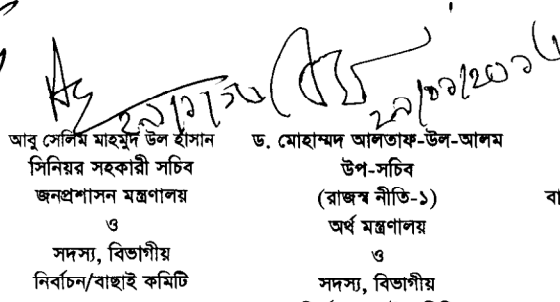 ২৯/১/২০ ২৯/০১/২০২৬
আবু সেলিম মাহমুদ উল হাসান
সিনিয়র সহকারী সচিব
জনপ্রশাসন মন্ত্রণালয়
ও
সদস্য, বিভাগীয়
নির্বাচন/বাছাই কমিটি
ড. মোহাম্মদ আলতাফ-উল-আলম
উপ-সচিব
(রাজস্ব নীতি-১)
অর্থ মন্ত্রণালয়
ও
সদস্য, বিভাগীয়
বা